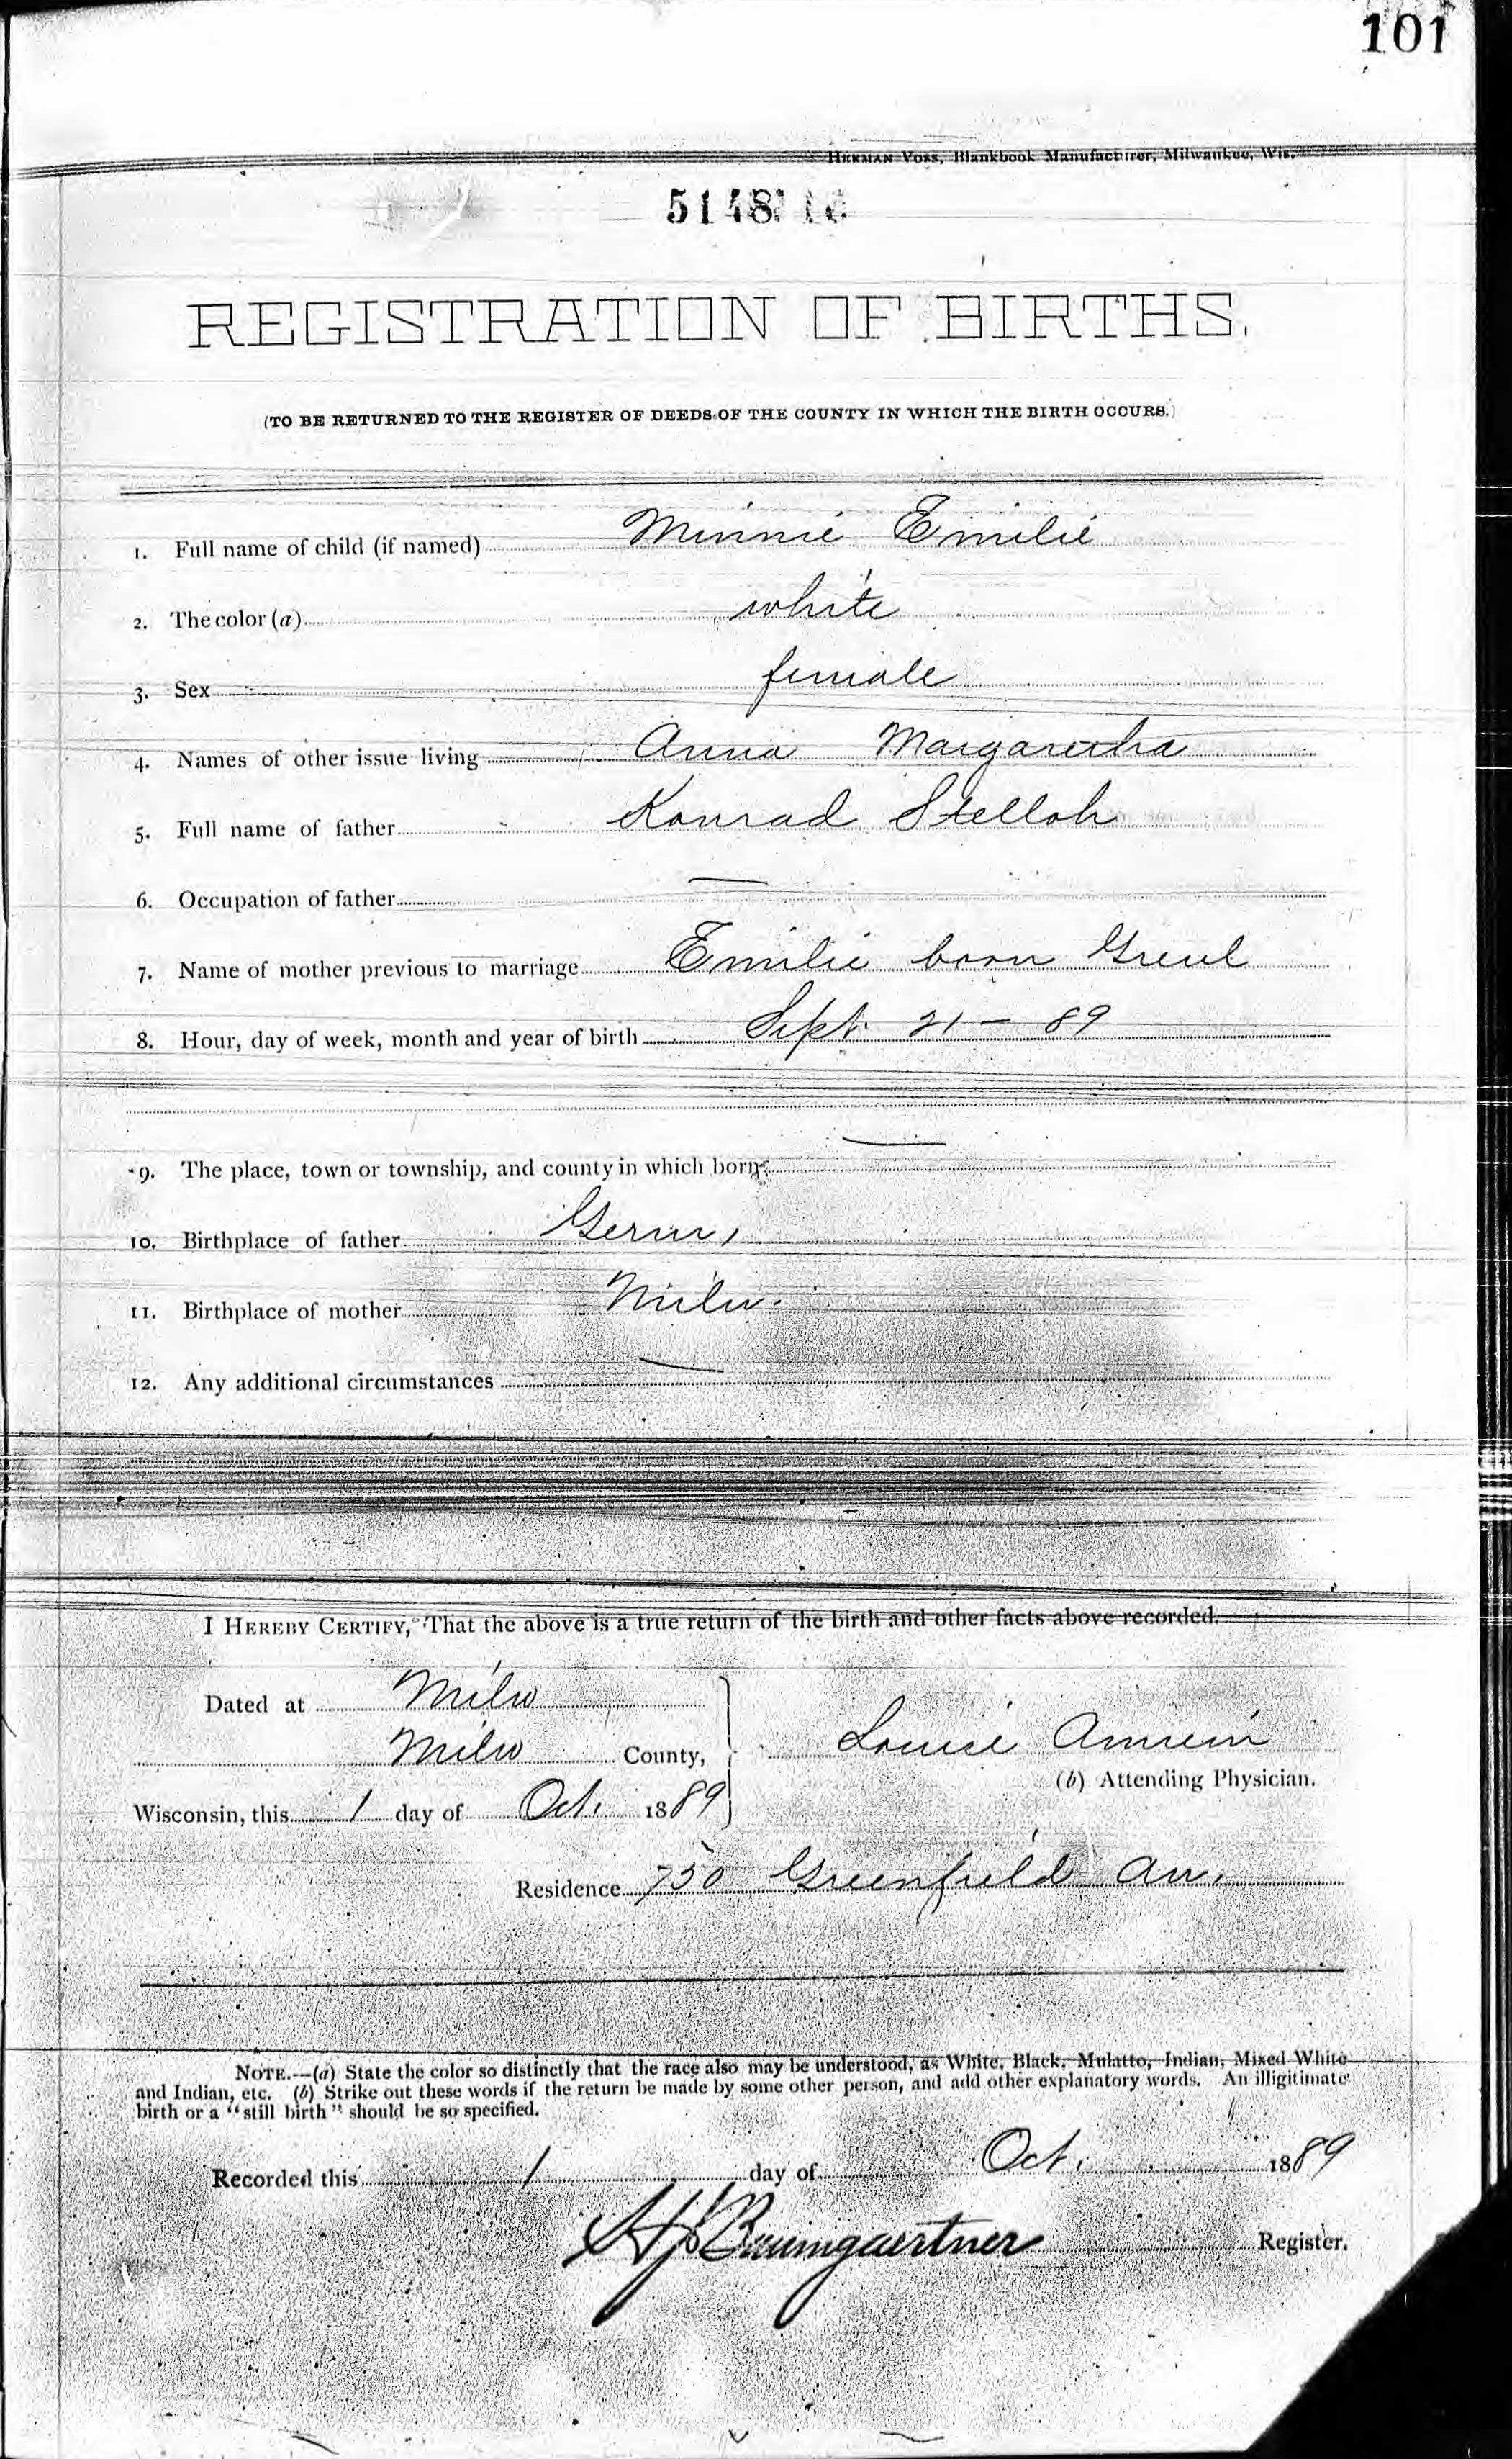 101
HERMAN VOSS, Blankbook Manufacturer, Milwaukee, Wis.
5148
REGISTRATION OF BIRTHS.
(TO BE RETURNED TO THE REGISTER OF DEEDS OF THE COUNTY IN WHICH THE BIRTH OCCURS.)
1. Full name of child (if named) Minnie Emilie
2. The color (a) white
3. Sex female
4. Names of other issue living Anna Margaretha
5. Full name of father Konrad Stelloh
6. Occupation of father —
7. Name of mother previous to marriage Emilie born Greul
8. Hour, day of week, month and year of birth Sept. 21 – 89
9. The place, town or township, and county in which born: —
10. Birthplace of father Germ,
11. Birthplace of mother Milw.
12. Any additional circumstances —
I HEREBY CERTIFY, That the above is a true return of the birth and other facts above recorded.
Dated at Milw
Milw County,
Louise
(b) Attending Physician.
Wisconsin, this 1 day of Oct. 1889
Residence 750 Greenfield Av.
NOTE.—(a) State the color so distinctly that the race also may be understood, as White, Black, Mulatto, Indian, Mixed White
and Indian, etc. (b) Strike out these words if the return be made by some other person, and add other explanatory words. An illigitimate
birth or a "still birth" should be so specified.
Recorded this 1 day of Oct. 1889
Baumgaertner Register.